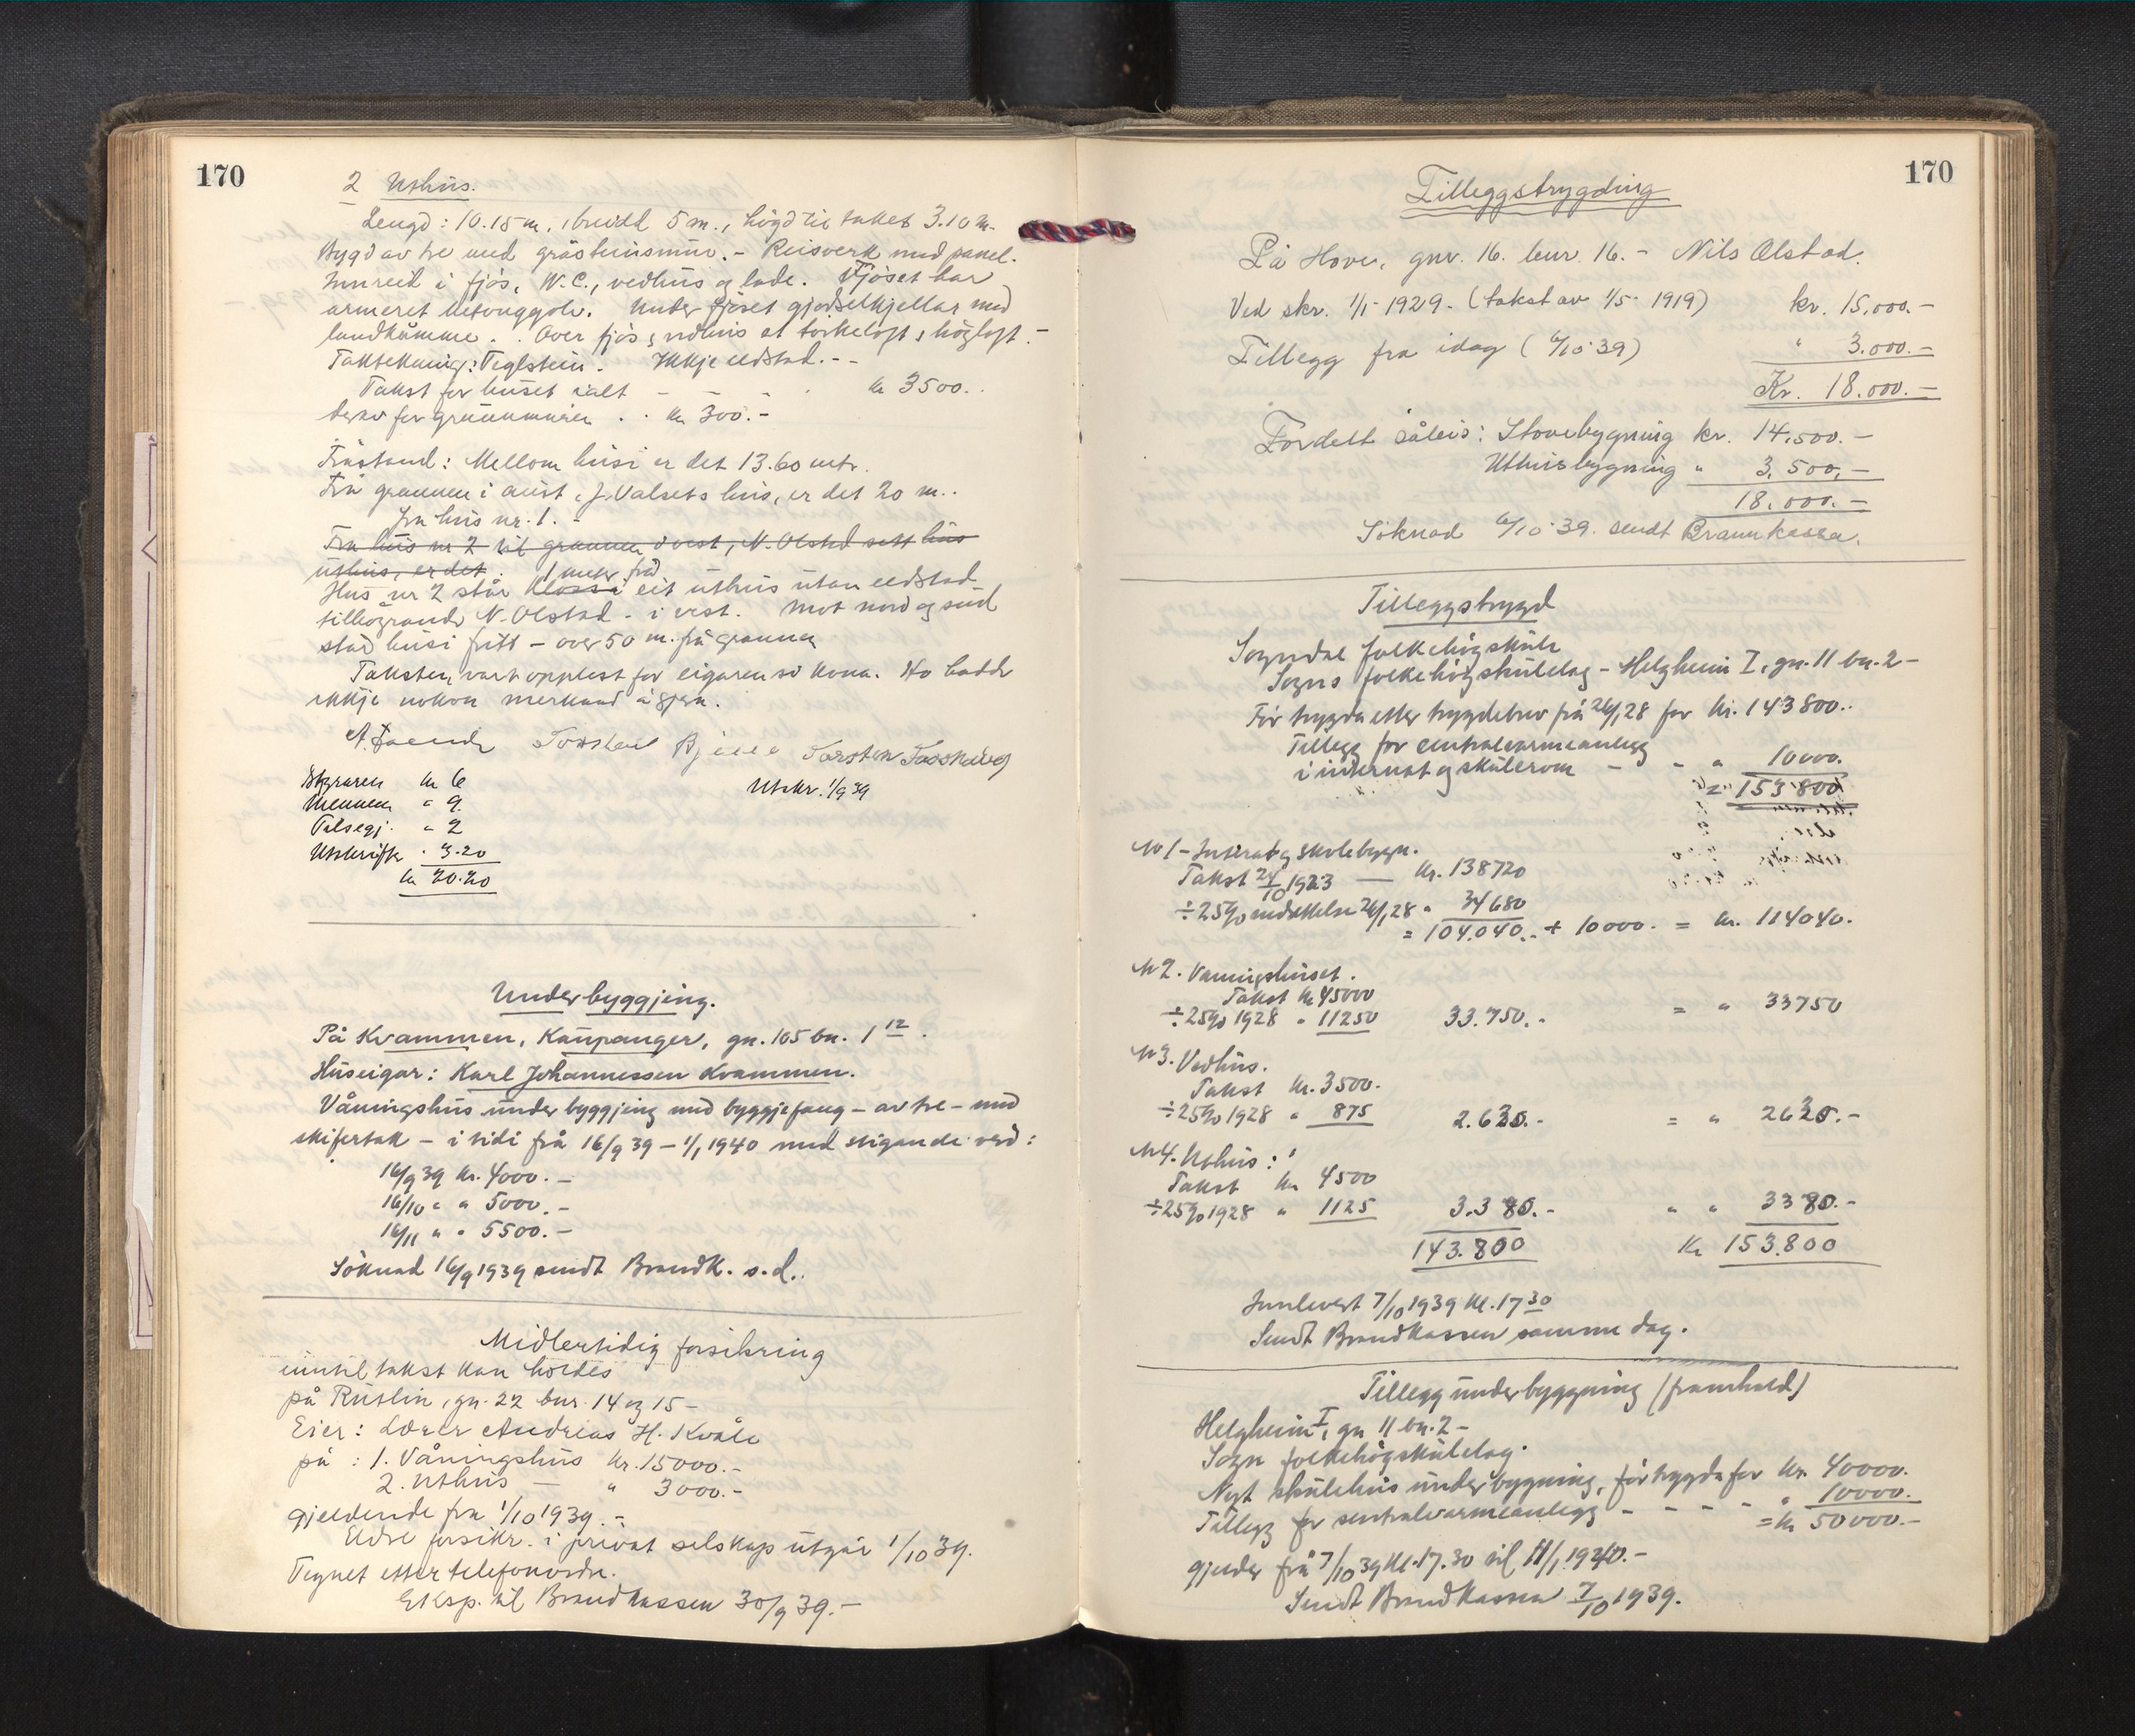 170
2 Uthus.
Lengd: 10.15 m, breidd 5 m., högd til taket 3.10 m.
Bygd av tre med gråsteinsmur. - Reisverk med panel.
Innreid i fjös, W.C., vedhus og lade. Fjöset har
armeret betonggolv. Under fjöset gjödselkjellar med
landkumme. . Over fjös, vedhus et törkeloft, höyloft. -
Taktekking: Teglstein. Ikkje eldstad. - -
Takst for huset ialt - - - . kr 3500..
berav for grunnmuren . . kr 300.-
Fråstand: Mellom husi er det 13.60 mtr.
Frå grannen i aust, J. Valsets hus, er det 20 m..
fra hus nr. 1. -
Fra hus nr 2 til grannen i vest, N. Olstad sitt hus
uthus, er det . 1 meter frå
Hus nr 2 står klossi eit uthus utan eldstad
tilhøyrande N. Olstad - i vest. Mot nord og sud
står husi fritt - over 50 m. frå grannen
Taksten vart opplest for eigaren si kona. Ho hadde
ikkje nokon merknad å gjera.
Torstein Bjelle Torsten
Styraren kr 6
Mennene " 9
Talsegj. " 2
Utskrift . 3.20
kr 20.20
Utskr. 1/9 39
Under byggjing.
På Kvammen, Kaupanger, gn. 105 bn. 1 12.
Huseigar: Karl Johannessen Kvammen.
Våningshus under byggjing med byggjefang - av tre - med
skifertak - i tidi frå 16/9 39 - 1/1 1940 med stigande verd:
16/9 39 kr. 4000. -
16/10 " " 5000. -
16/11 " " 5500. -
Söknad 16/9 1939 sendt Brandk. s.d..
Midlertidig forsikring
inntil takst kan holdes
på Rutlin, gn. 22 bnr. 14 og 15 -
Eier: Lærer Andreas H. Kvåle
på : 1. Våningshus kr. 15000.-
2. Uthus - " 3000.-
gjeldende fra 1/10 1939. -
Eldre forsikr. i privat selskap utgår 1/10 39.
Tegnet etter telefonordre.
Eksp. til Brandkassen 30/9 39. -
170
Tilleggstrygding
På Hove, gnr. 16. bnr. 16. - Nils Olstad.
Ved skr. 1/1 - 1929. (takst av 1/5 - 1919) kr. 15.000.-
Tillegg fra idag (6/10 39) " 3.000.-
Kr. 18.000.-
Fordelt såleis: Stovebygning kr. 14.500. -
Uthusbygning " 3.500,-
18.000.-
Söknad 6/10 39. sendt Brannkassa.
Tilleggstrygd
Sogndal folkehögskule
Sogns folkehögskulelag - Helgheim I, gn. 11 bn. 2 -
För trygda etter trygdebrev frå 26/1 28 for kr. 143800..
Tillegg for centralvarmeanlegg
i internat og skulerom - - " 10000.
= 153.800
No 1 - Internat og skolebygn.
Takst 24/10 1923 — kr. 138720
÷ 25% nedsettelse 26/1 28 " 34680
= 104.040.. + 10000. = kr. 114040.
No 2. Vaningshuset.
Takst kr 45000
÷ 25% 1928 " 11250 33.750.- = " 33750
No 3. Vedhus.
Takst kr. 3500.
÷ 25% 1928 " 875 2.630.- = " 2630.-
No 4. Uthus:
Takst kr 4500
÷ 25% 1928 " 1125 3.380.- " " 3380.-
143.800 Kr 153.800
Innlevert 7/10 1939 kl. 17 30
Sendt Brandkassen samme dag.
Tillegg under byggning (framhald)
Helgheim I, gn 11 bn. 2 -
Sogn folkehögskulelag.
Nytt skulehus under bygning, förtrygda for kr. 40000.
Tillegg for sentralvarmeanlegg - - - - " 10000.
= kr 50000.-
gjelder frå 7/10 39 kl. 17.30 til 11/1 1940.-
Sendt Brandkassen 7/10 1939.